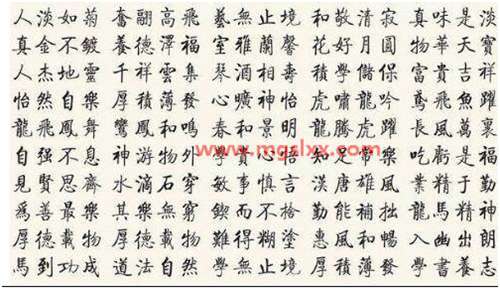 人淡如菊 奮翮高飛 藝無止境 和敬清寂 真味是淡
真金不鍍 養德澤福 室雅蘭馨 花好月圓 物華天寶
人杰地靈 千祥雲集 琴酒相壽 積學儲 富貴吉祥
怡然自樂 厚積薄發 心曠神怡 虎嘯龍吟 鳶飛魚躍
龍飛鳳舞 鸞鳳和鳴 春和景明 龍騰虎躍 長風萬裏
自強不息 神游物外 學貴心悟 知足常樂 吃虧是福
見賢思齊 水滴石穿 敏事慎言 漢唐雄風 業精于勤
爲善最樂 其樂無窮 鍥而不捨 勤能補拙 龍馬精神
厚德載物 厚德載物 難得糊塗 惠風和暢 入幽出朗
馬到功成 道法自然 學無止境 厚積薄發 學書養志